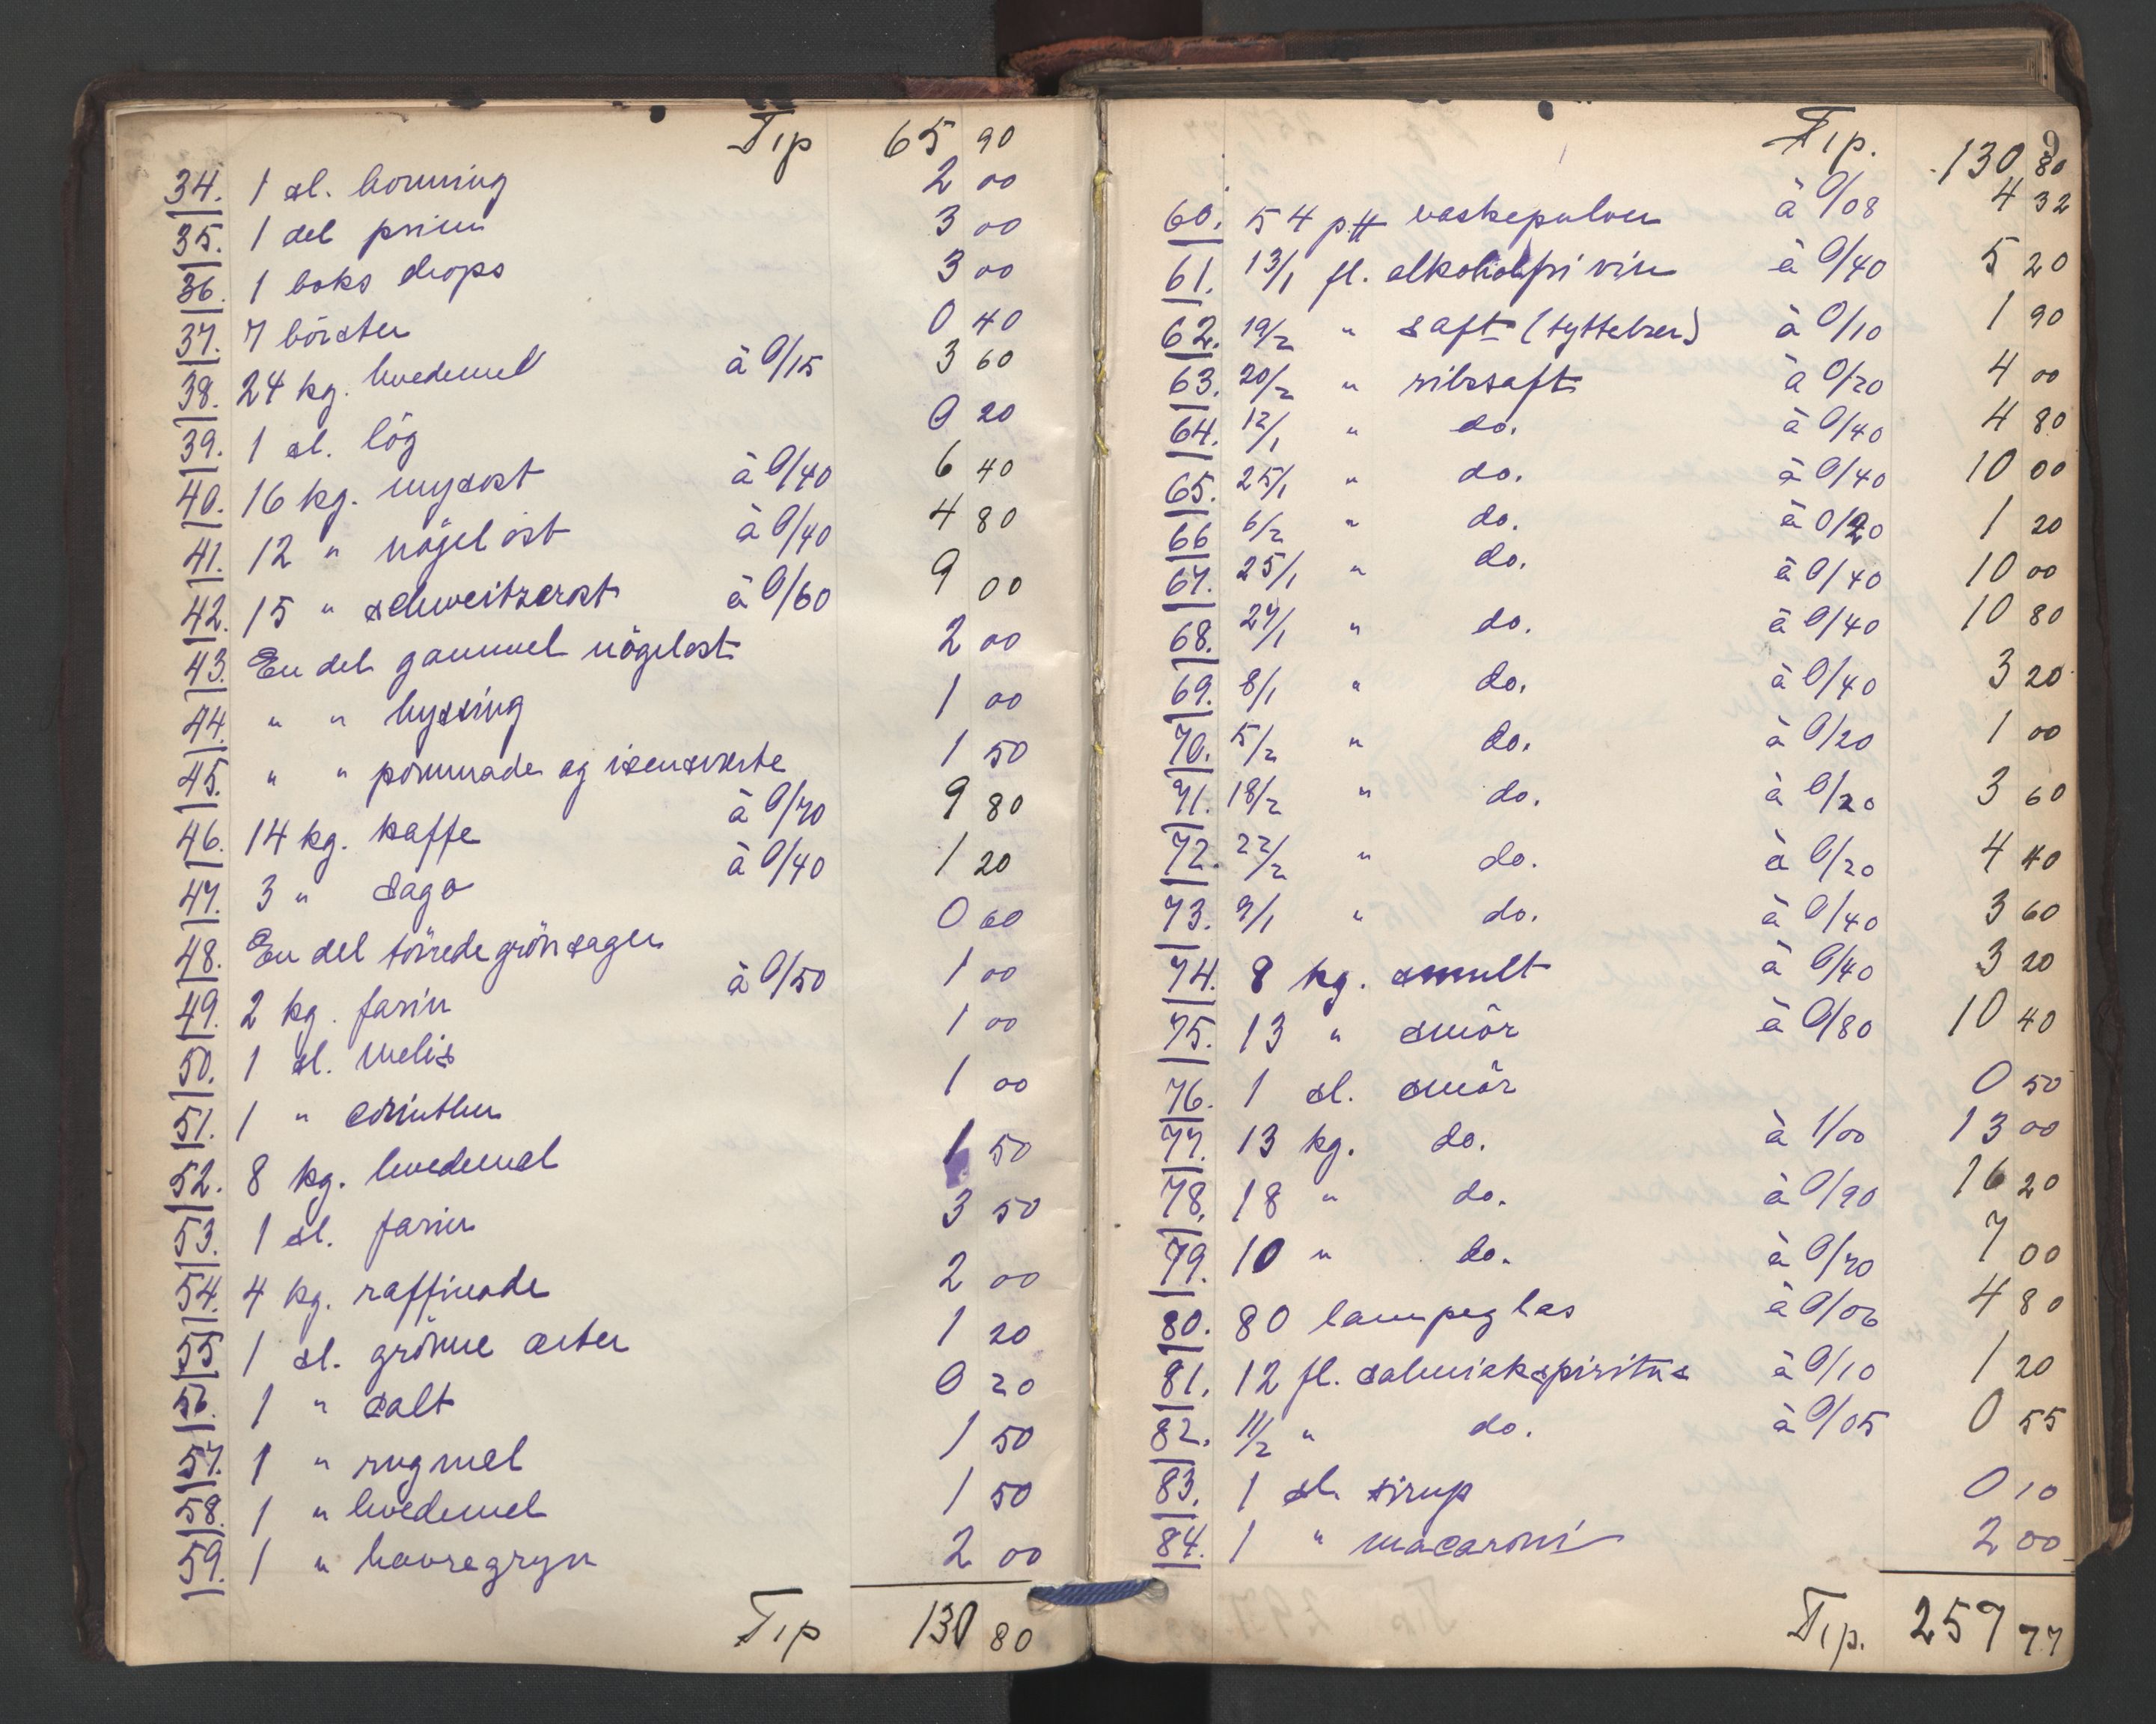 Tip 65 90
34. 1 sl. honning 2 00
35. 1 del prim 3 00
36. 1 boks drops 3 00
37. 7 börster 0 40
38. 24 kg. hvedemel à 0/15 3 60
39. 1 sl. lög 0 20
40. 16 kg. mysost à 0/40 6 40
41. 12 " nögelost à 0/40 4 80
42. 15 " schweitzerost à 0/60 9 00
43. En del gammel nögelost 2 00
44. " " hyssing 1 00
45. " " pommade og isensverte 1 50
46. 14 kg. kaffe à 0/70 9 80
47. 3 " sago à 0/40 1 20
48. En del törrede grönsager 0 60
49. 2 kg. farin à 0/50 1 00
50. 1 sl. melis 1 00
51. 1 " corinther 1 00
52. 8 kg. hvedemel 1 50
53. 1 sl. farin 3 50
54. 4 kg. raffinade 2 00
55. 1 sl. grönne erter 1 20
56. 1 " salt 0 20
57. 1 " rugmel 1 50
58. 1 " hvedemel 1 50
59. 1 " havregryn 2 00
Tip 130 80
9
Tip. 130 80
60. 54 p.# vaskepulver à 0/08 4 32
61. 13/1 fl. alkoholfri vin à 0/40 5 20
62. 19/2 " saft (tyttebær) à 0/10 1 90
63. 20/2 " ribssaft à 0/20 4 00
64. 12/1 " do. à 0/40 4 80
65. 25/1 " do. à 0/40 10 00
66 6/2 " do. à 0/20 1 20
67. 25/1 " do. à 0/40 10 00
68. 27/1 " do. à 0/40 10 80
69. 8/1 " do. à 0/40 3 20
70. 5/2 " do. à 0/20 1 00
71. 18/2 " do. à 0/20 3 60
72. 22/2 " do. à 0/20 4 40
73. 9/1 " do. à 0/40 3 60
74. 8 kg. smult à 0/40 3 20
75. 13 " smör à 0/80 10 40
76. 1 sl. smör 0 50
77. 13 kg. do. à 1/00 13 00
78. 18 " do. à 0/90 16 20
79. 10 " do. à 0/70 7 00
80. 80 lampeglas à 0/06 4 80
81. 12 fl. salmiakspiritus à 0/10 1 20
82. 11/2 " do. à 0/05 0 55
83. 1 sl. sirup 0 10
84. 1 " macaroni 2 00
Tip. 257 77